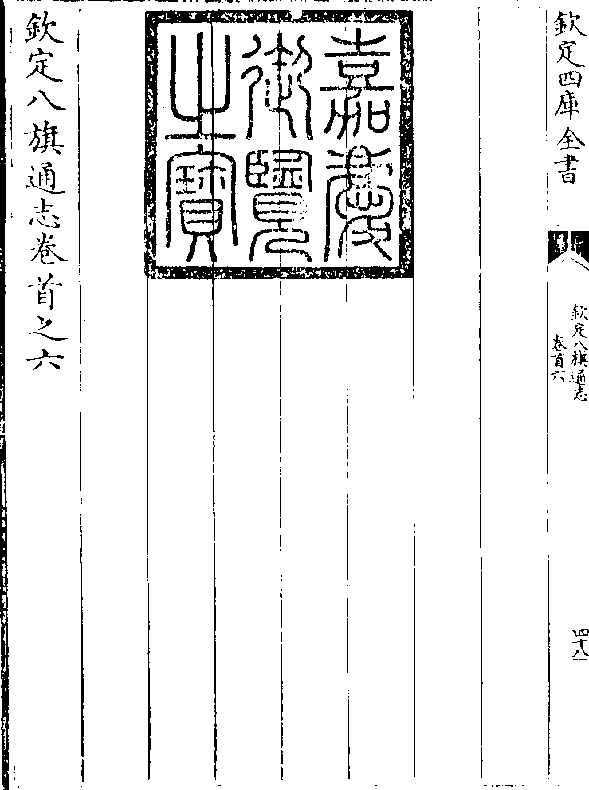 欽定四庫全書
欽定八旗通志
卷首六
四十八
嘉慶
御覽
之寶
欽定八旗通志卷首之六